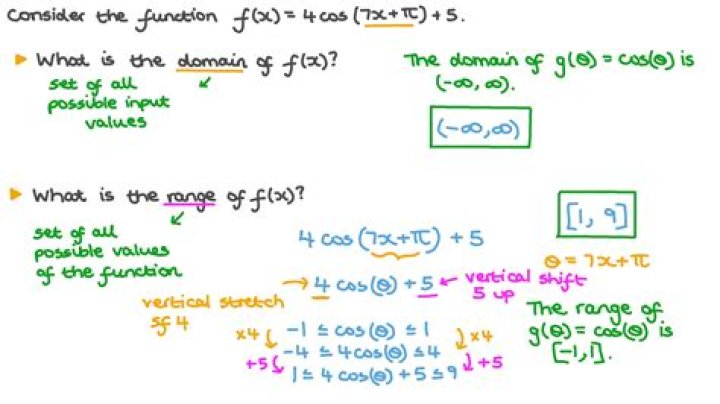 Consider the function f(x) = 4 cos (7x+π) + 5.
▸ What is the domain of f(x)?
set of all
possible input
values
The domain of g(θ) = cos(θ) is
(-∞, ∞).
(-∞, ∞)
▸ What is the range of f(x)?
set of all
possible values
of the function
[1, 9]
4 cos (7x+π) + 5
θ = 7x+π
→ 4 cos(θ) + 5 ← vertical shift
5 up
vertical stretch
sf 4
The range of
g(θ) = cos(θ) is
[-1, 1].
×4 -1 ≤ cos(θ) ≤ 1 ×4
-4 ≤ 4cos(θ) ≤ 4
+5 1 ≤ 4 cos(θ) + 5 ≤ 9 +5